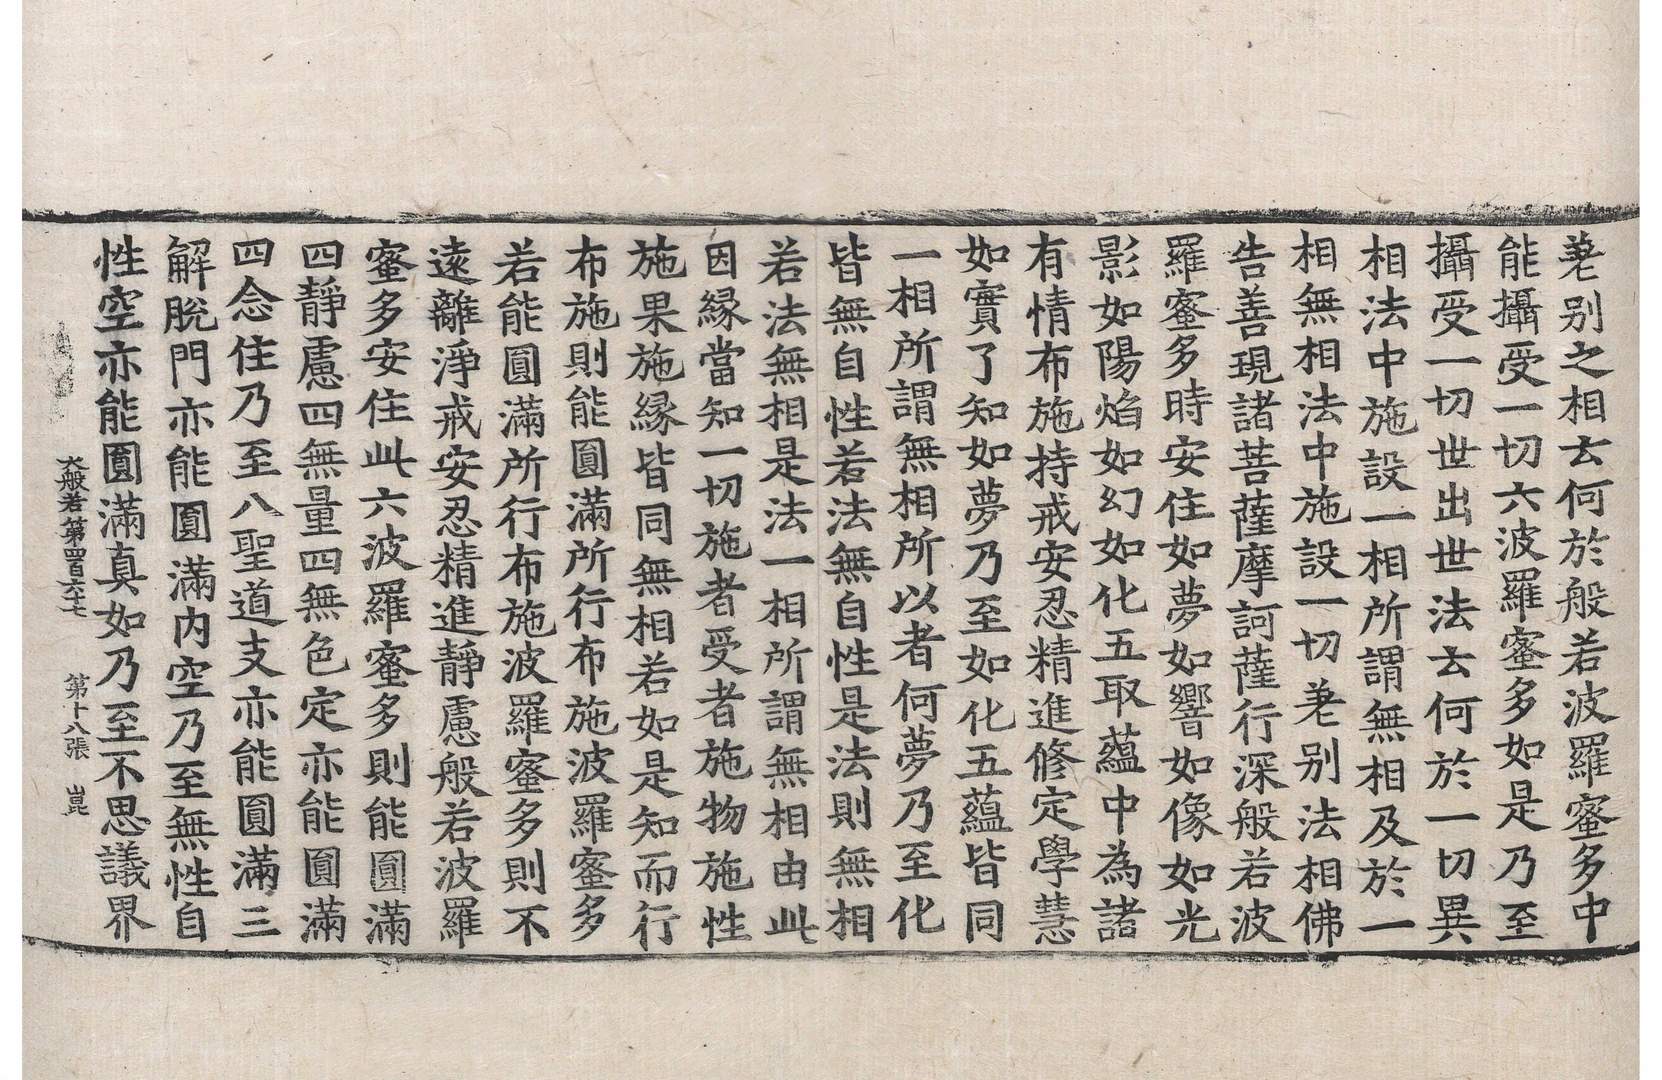 差别之相云何於般若波羅蜜多中
能攝受一切六波羅蜜多如是乃至
攝受一切世出世法云何於一切異
相法中施設一相所謂無相及於一
相無相法中施設一切差别法相佛
告善現諸菩薩摩訶薩行深般若波
羅蜜多時安住如夢如響如像如光
影如陽焰如幻如化五取蘊中為諸
有情布施持戒安忍精進修定學慧
如實了知如夢乃至如化五蘊皆同
一相所謂無相所以者何夢乃至化
皆無自性若法無自性是法則無相
若法無相是法一相所謂無相由此
因縁當知一切施者受者施物施性
施果施縁皆同無相若如是知而行
布施則能圓滿所行布施波羅蜜多
若能圓滿所行布施波羅蜜多則不
遠離淨戒安忍精進靜慮般若波羅
蜜多安住此六波羅蜜多則能圓滿
四靜慮四無量四無色定亦能圓滿
四念住乃至八聖道支亦能圓滿三
解脫門亦能圓滿内空乃至無性自
性空亦能圓滿真如乃至不思議界
大般若第四百六十七 第十八張 崑